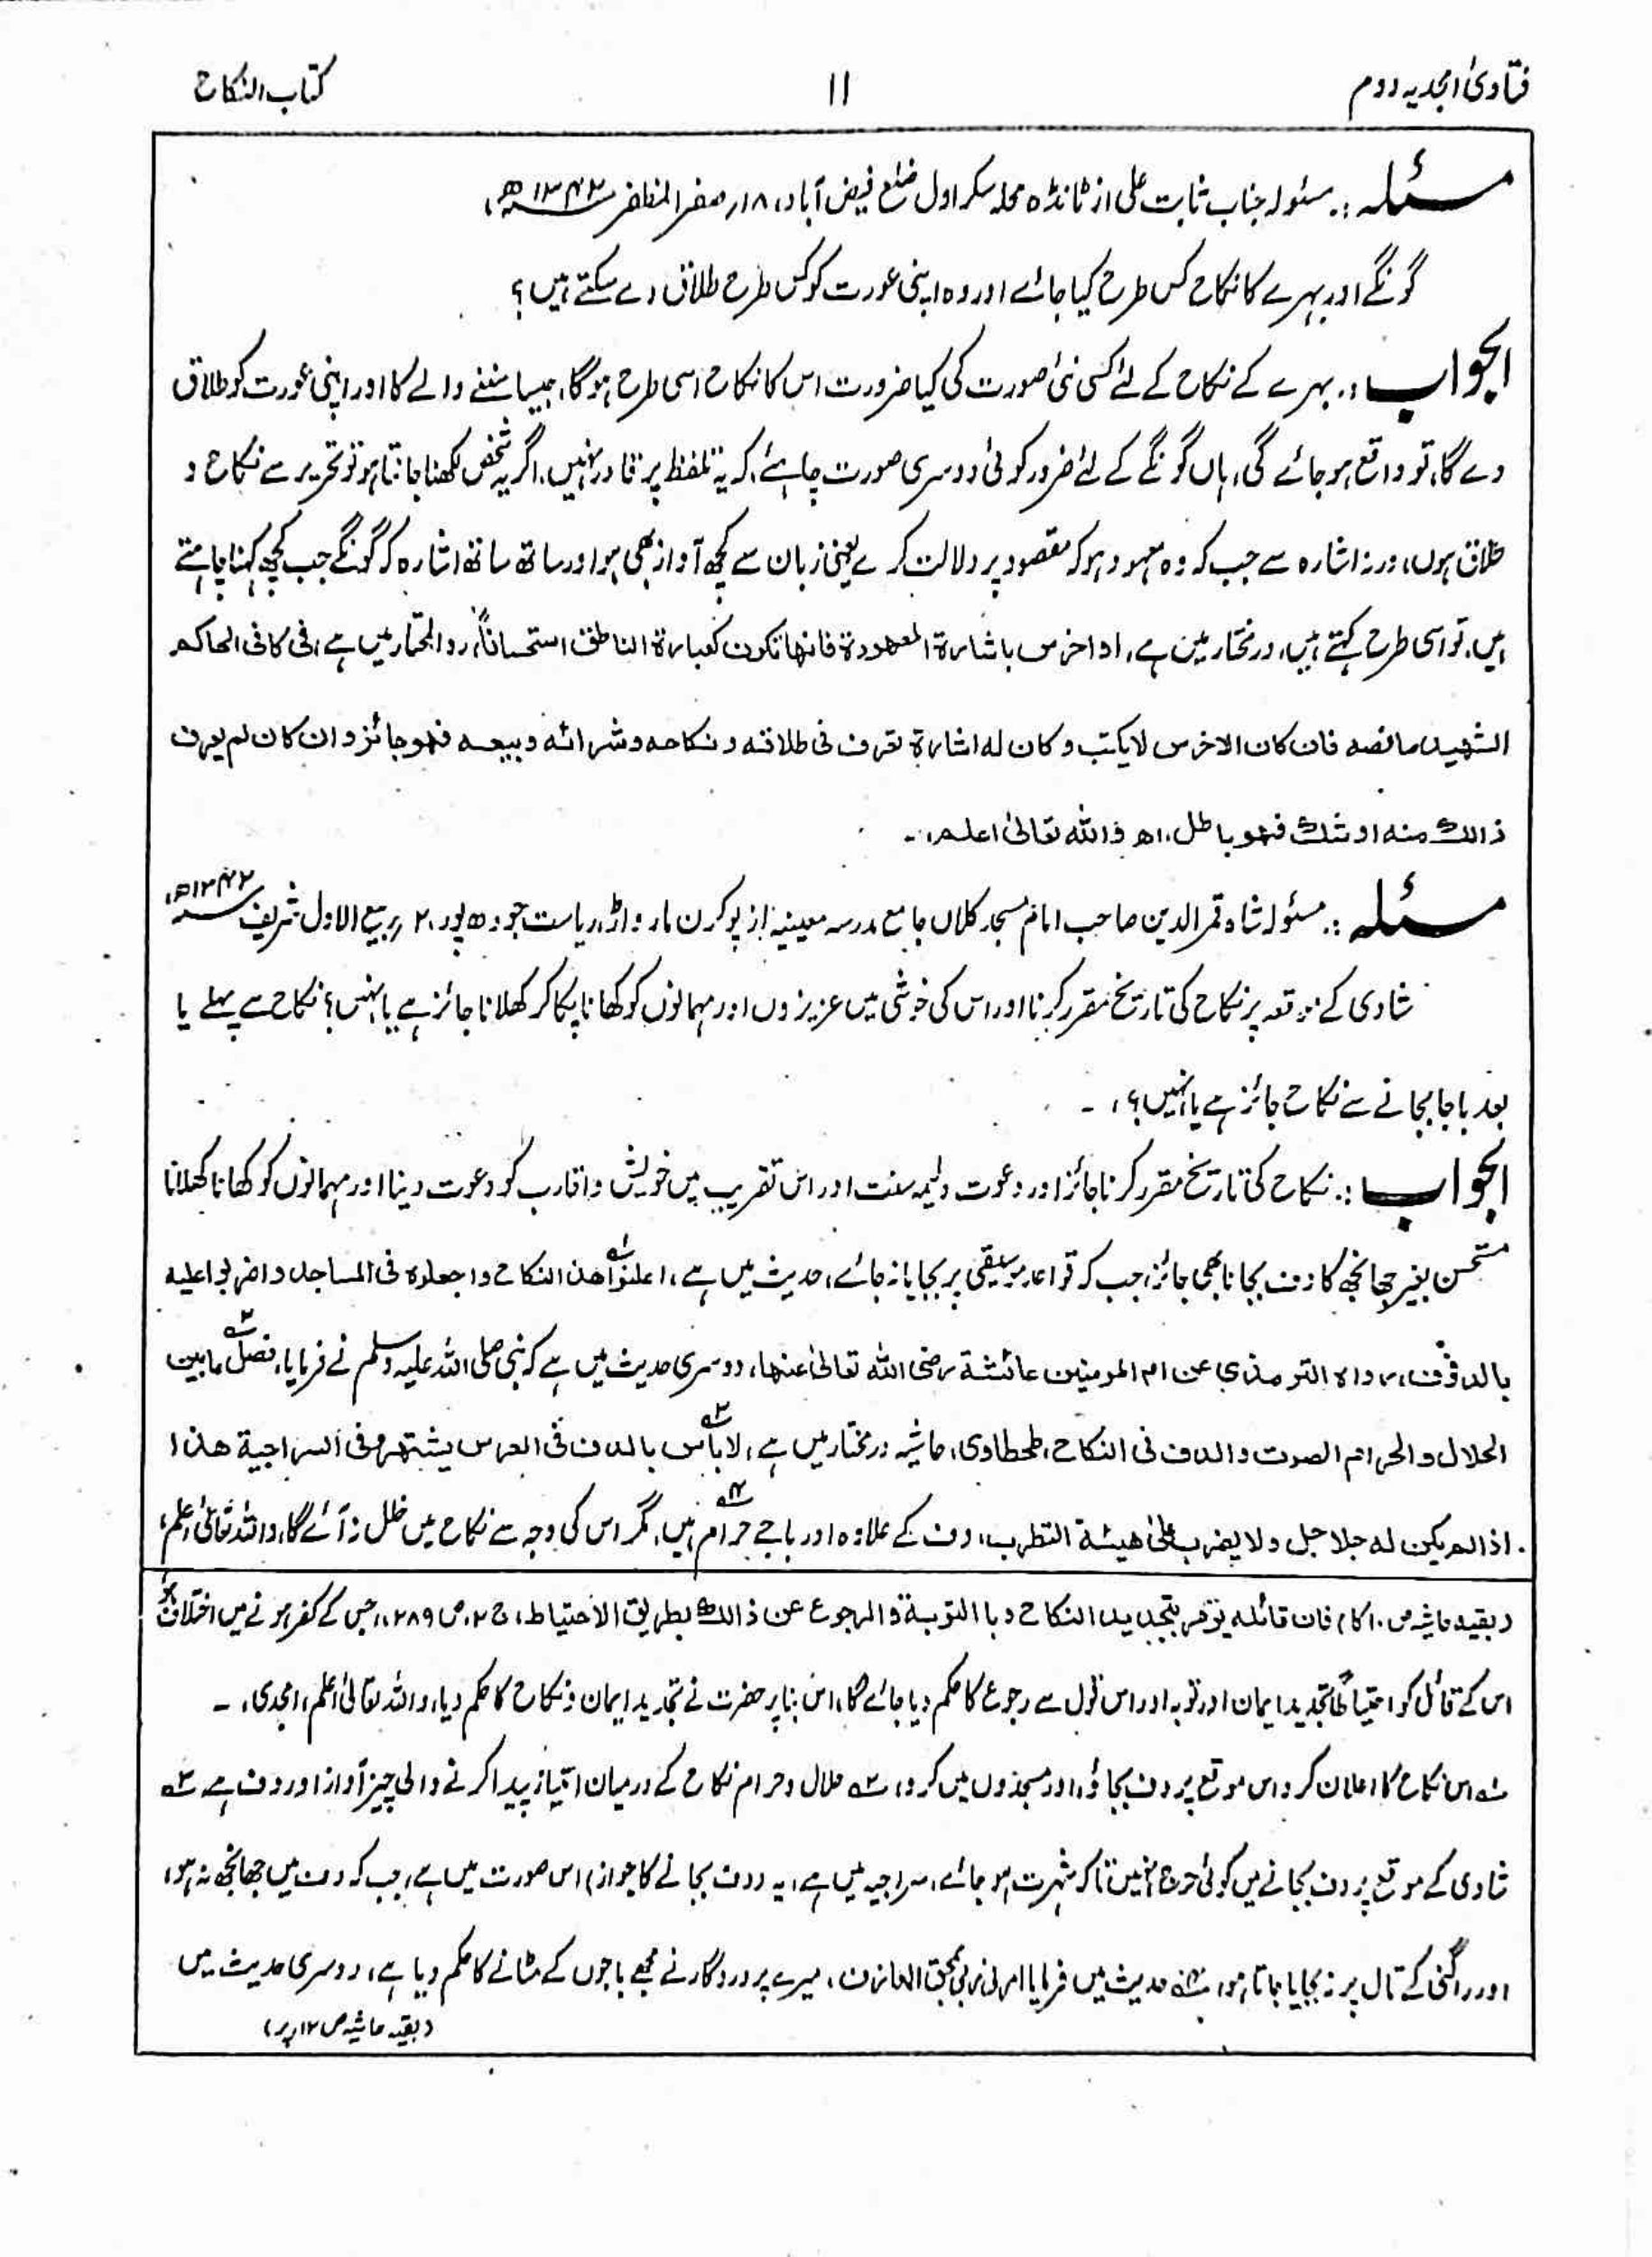 فتاویٰ امجدیہ دوم
۱۱
کتاب النکاح
مسئلہ :. مسئولہ جناب ثابت علی از ٹانڈہ محلہ سکراول ضلع فیض آباد، ۱۸؍ صفر المظفر ۱۳۴۲ھ،
گونگے اور بہرے کا نکاح کس طرح کیا جائے اور وہ اپنی عورت کو کس طرح طلاق دے سکتے ہیں؟
الجواب :. بہرے کے نکاح کے لئے کسی نئی صورت کی کیا ضرورت، اس کا نکاح اسی طرح ہوگا، جیسا سننے والے کا اور اپنی عورت کو طلاق
دے گا، تو واقع ہو جائے گی، ہاں گونگے کے لئے ضرور کوئی دوسری صورت چاہئے، کہ یہ تلفظ پر قادر نہیں، اگر یہ شخص لکھنا جانتا ہو تو تحریر سے نکاح و
طلاق ہوں، ورنہ اشارہ سے جب کہ وہ معہود ہو کہ مقصود پر دلالت کرے یعنی زبان سے کچھ آواز بھی ہو اور ساتھ ساتھ اشارہ کہ گونگے جب کچھ کہنا چاہتے
ہیں، تو اسی طرح کہتے ہیں، درمختار میں ہے، او اخرس باشارۃ المعھودۃ فانھا تکون کعبارۃ الناطق استحساناً، ردالمحتار میں ہے، فی کافی الحاکم
الشھید ما نصہ فان کان الاخرس لا یکتب و کان لہ اشارۃ تعرف فی طلاقہ و نکاحہ و شرائہ و بیعہ فھو جائز و ان کان لم یعرف
ذالک منہ او شک فھو باطل، اھ واللہ تعالیٰ اعلم، ۔
مسئلہ :. مسئولہ شاہ قمر الدین صاحب امام مسجد کلاں جامع مدرسہ معینیہ از پوکرن مارواڑ، ریاست جودھپور، ۲۰؍ ربیع الاول شریف ۱۳۴۲ھ،
شادی کے موقعہ پر نکاح کی تاریخ مقرر کرنا اور اس کی خوشی میں عزیزوں اور مہمانوں کو کھانا پکا کر کھلانا جائز ہے یا نہیں؟ نکاح سے پہلے یا
بعد باجا بجانے سے نکاح جائز ہے یا نہیں؟، ۔
الجواب :. نکاح کی تاریخ مقرر کرنا جائز اور دعوت ولیمہ سنت اور اس تقریب میں خویش و اقارب کو دعوت دینا اور مہمانوں کو کھانا کھلانا
مستحسن بغیر جھانجھ کا دف بجانا بھی جائز، جب کہ قواعد موسیقی پر بجایا نہ جائے، حدیث میں ہے، اعلنوا ھذا النکاح و اجعلوہ فی المساجد و اضربوا علیہ
بالدفوف، رواہ الترمذی عن ام المومنین عائشۃ رضی اللہ تعالیٰ عنھا، دوسری حدیث میں ہے کہ نبی صلی اللہ علیہ وسلم نے فرمایا، فصل ما بین
الحلال و الحرام الصوت و الدف فی النکاح، طحطاوی، حاشیہ درمختار میں ہے، لا باس بالدف فی العرس یشتھر و فی السراجیۃ ھذا
اذا لم یکن لہ جلاجل و لا یضرب علیٰ ھیئۃ التطرب، دف کے علاوہ اور باجے حرام ہیں، مگر اس کی وجہ سے نکاح میں خلل نہ آئے گا، واللہ تعالیٰ اعلم،
(بقیہ حاشیہ ص ۱۰ کا) فان قائلہ یؤمر بتجدید النکاح و بالتوبۃ و الرجوع عن ذالک بطریق الاحتیاط، ج ۲، ص ۲۸۹، جس کے کفر ہونے میں اختلاف ہو
اس کے قائل کو احتیاطاً تجدید ایمان اور توبہ اور اس قول سے رجوع کا حکم دیا جائے گا، اس بنا پر حضرت نے تجدید ایمان و نکاح کا حکم دیا، واللہ تعالیٰ اعلم، امجدی، ۔
۱؎ اس نکاح کا اعلان کرو اس موقع پر دف بجاؤ، اور مسجدوں میں کرو، ۲؎ حلال و حرام نکاح کے درمیان امتیاز پیدا کرنے والی چیز آواز اور دف ہے ۳؎
شادی کے موقع پر دف بجانے میں کوئی حرج نہیں تاکہ شہرت ہو جائے، سراجیہ میں ہے، یہ (دف بجانے کا جواز) اس صورت میں ہے، جب کہ دف میں جھانجھ نہ ہو،
اور راگنی کے تال پر نہ بجایا جاتا ہو، ۴؎ حدیث میں فرمایا امرنی ربی بمحق المعازف، میرے پروردگار نے مجھے باجوں کے مٹانے کا حکم دیا ہے، دوسری حدیث میں
(بقیہ حاشیہ ص ۱۲ پر)